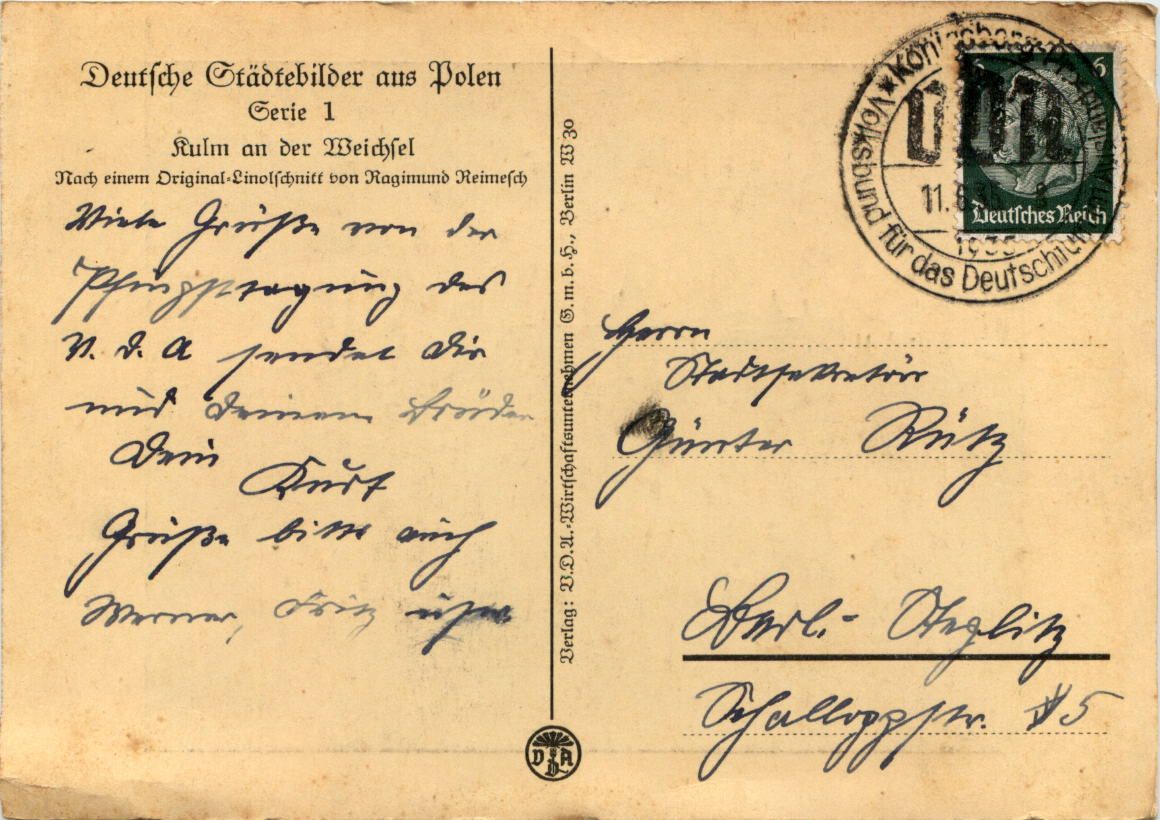 Deutsche Städtebilder aus Polen
Serie 1
Kulm an der Weichsel
Nach einem Original-Linolschnitt von Ragimund Reimesch
Viele Grüße von der
Pfingsttagung des
V. d. A sendet Dir
und Deinem Bruder
Dein
Kurt
Grüße bitte auch
Werner, Fritz
Verlag: V.D.A.-Wirtschaftsunternehmen G.m.b.H., Berlin W 30
VDA
Königsberg
Volksbund für das Deutschtum
VDA
11.6.
1935
6
Deutsches Reich
Herrn
Stadtsekretär
Günter Rütz
Berl.- Steglitz
Schalloppstr. 5